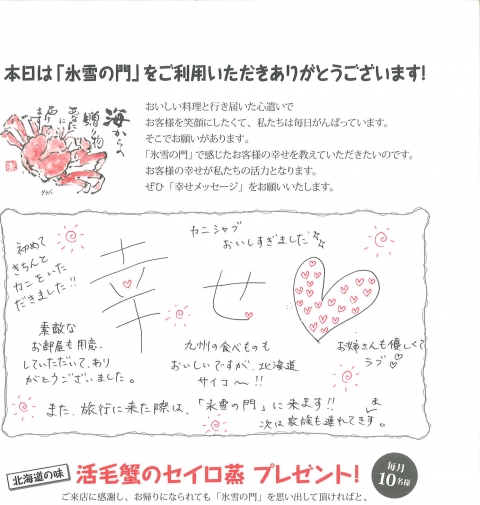 本日は「氷雪の門」をご利用いただきありがとうございます!
海からの
贈り物
おいしい料理と行き届いた心遣いで
お客様を笑顔にしたくて、私たちは毎日がんばっています。
そこでお願いがあります。
「氷雪の門」で感じたお客様の幸せを教えていただきたいのです。
お客様の幸せが私たちの活力となります。
ぜひ「幸せメッセージ」をお願いいたします。
初めて
きちんと
カニをいた
だきました!!
幸せ
カニシャブ
おいしすぎました
素敵な
お部屋も用意
していただいて、あり
がとうございました。
九州の食べものも
おいしいですが、北海道
サイコ〜!!
お姉さんも優しくて
ラブ♡
また、旅行に来た際は、「氷雪の門」に来ます!!
次は家族も連れてきます。
北海道の味
活毛蟹のセイロ蒸 プレゼント!
毎月
10名様
ご来店に感謝し、お帰りになられても「氷雪の門」を思い出して頂ければと、